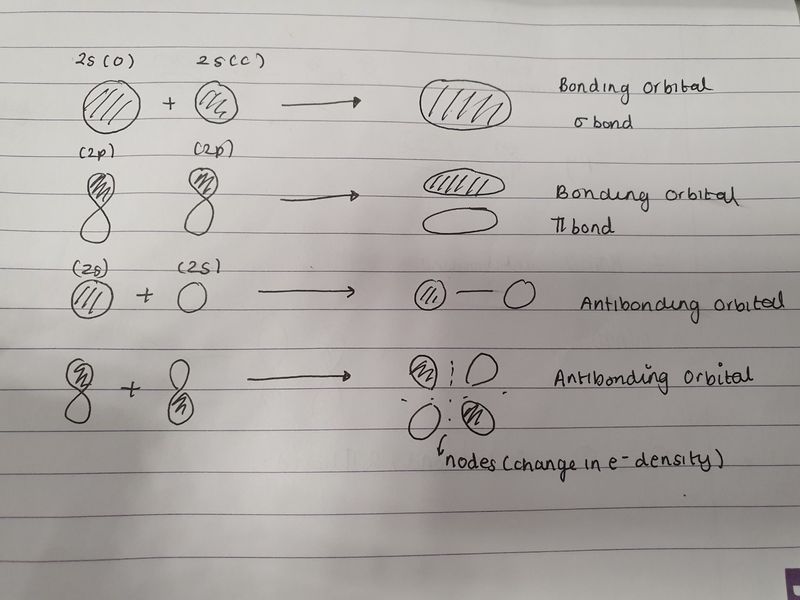 2s (O) 2s (C)
+ → Bonding orbital
σ bond
(2p) (2p)
→ Bonding orbital
π bond
(2s) (2s)
+ → — Antibonding orbital
+ → Antibonding orbital
nodes (change in e- density)